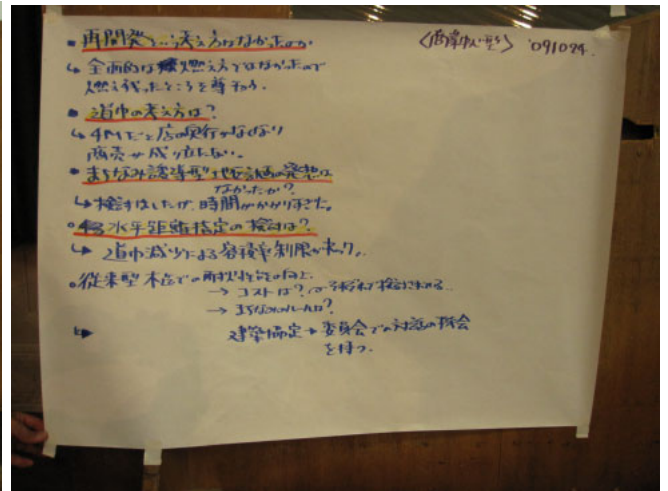 '091024.
• 再開発という考え方はなかったのか
↳ 全面的な燃え方ではなかったので
燃え残ったところを尊重する.
• 道巾の考え方は?
↳ 4Mだと店の奥行がなくなり
商売が成り立たない。
• まちなみ誘導型地区計画の発想は
なかったか?
↳ 検討はしたが、時間がかかりすぎた。
• 水平距離指定の検討は?
↳ 道巾減少による容積率制限が
• 従来型木造での耐火性能の
→ コストは?
→ まちなみルールは?
建築協定→委員会での対応の機会
を持つ.